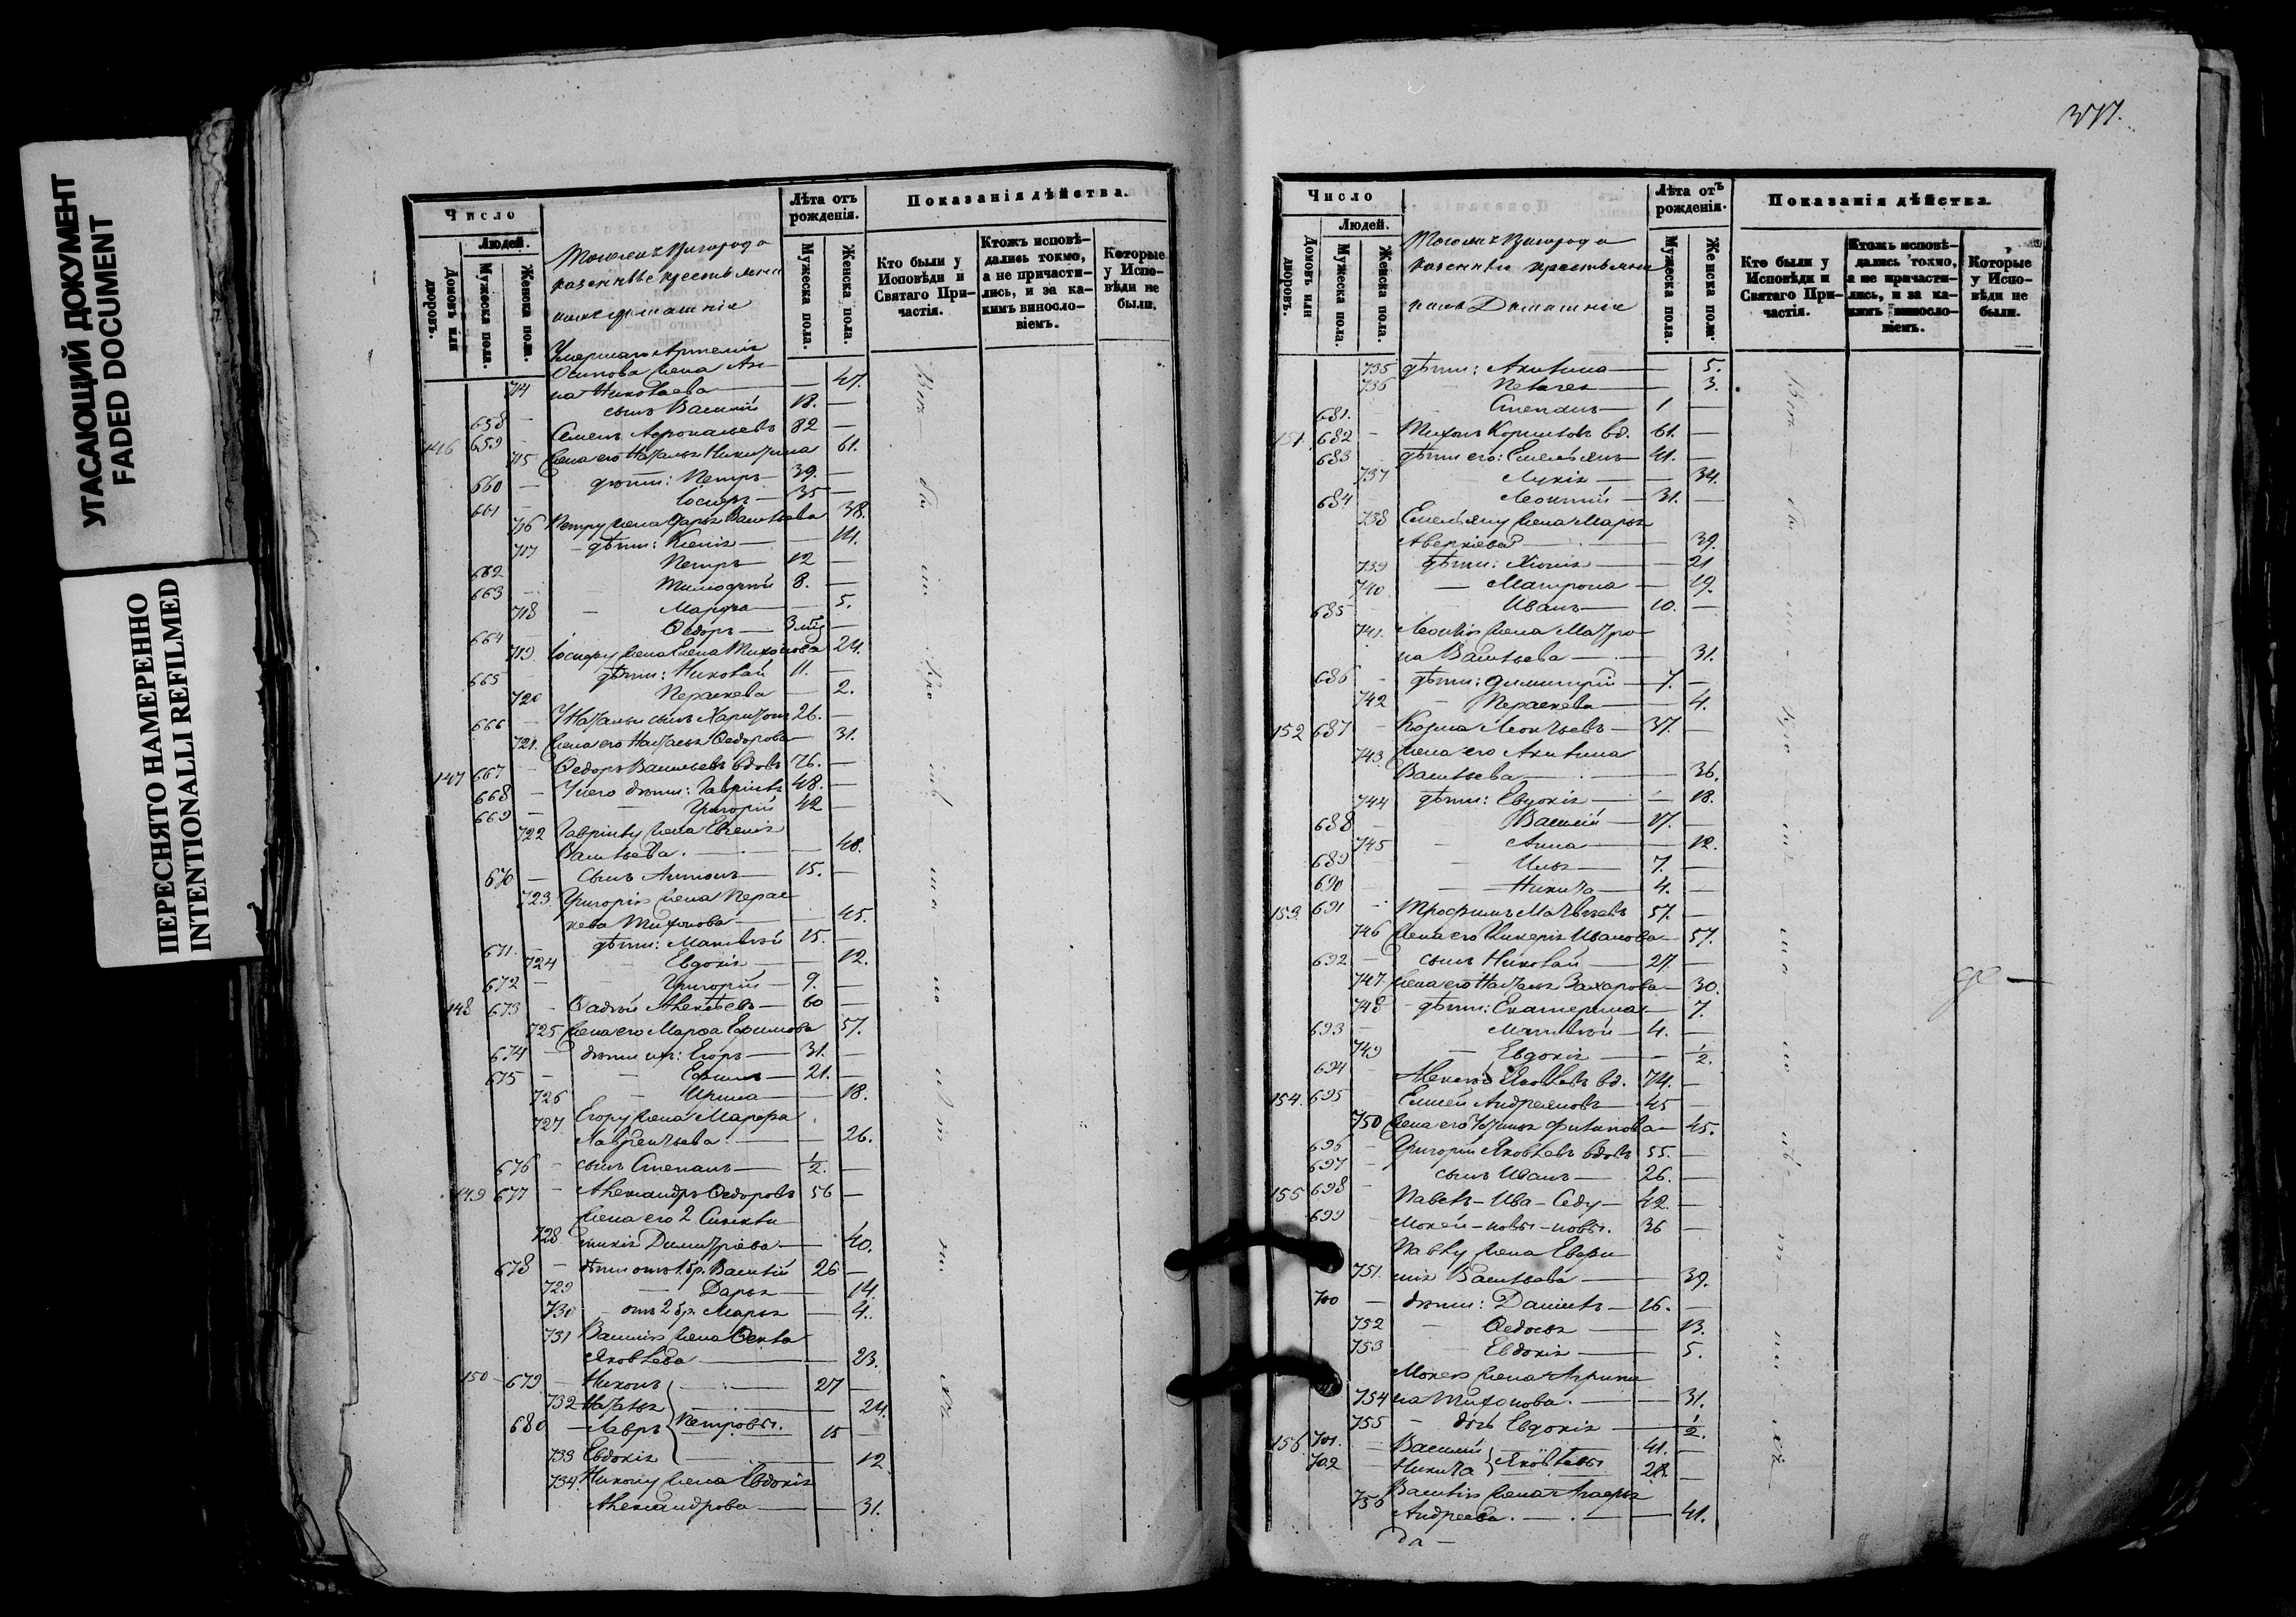 УГАСАЮЩИЙ ДОКУМЕНТ
FADED DOCUMENT
ПЕРЕСНЯТО НАМЕРЕННО
INTENTIONALLI REFILMED
Число
Людей.
Домовъ или дворовъ.
Мужеска пола.
Женска пола.
казенные крестьяне
Лѣта отъ рожденія.
Мужеска пола.
Женска пола.
Показанія дѣйства.
Кто были у Исповѣди и Святаго Причастія.
Ктожъ исповѣдались токмо, а не причастились, и за какимъ винословіемъ.
Которые у Исповѣди не были.
Умершаго Артемія
Осипова жена Ан-
714 на Николаева — — 47.
658 — сынъ Василий 18. —
146 659 — Семенъ 82 —
715 Жена его Наталья Никитина 61.
660 — дѣти: Петръ — 39. —
661 — Іосифъ — 35 —
716 Петру жена Дарья Васильева 38.
717 — дѣти: Ксенія — — 14.
662 Петръ — 12 —
663 — Тимофей 8. —
718 — Марфа — — 5.
664 — Ѳедоръ — 3 —
719 Іосифу жена Елена Тихонова 24.
665 — дѣти: Николай 11. —
720 Параскева — 2.
666 — сынъ Харитонъ 26. —
721. Жена его Наталья Ѳедорова — 31.
147 667 — Ѳедоръ Васильевъ вдовъ 76. —
668 — У него дѣти: Гавріилъ 48. —
669 — Григорій 42 —
722 Гавріилу жена Евгенія
Васильева. — — 48.
670 — Сынъ Антонъ — 15. —
723 Григорія жена Парас-
кева Тихонова — — 45.
671. — дѣти: Матвѣй 15. —
724 Евдокія — — 12.
672 — Григорій — 9. —
148 673 — Ѳадѣй Алексѣевъ — 60 —
725 Жена его Марѳа Ефимова 57.
674 — дѣти ихъ: Егоръ — 31. —
675 — Ефимъ — 21. —
726 — Ирина — — 18.
727. Егору жена Марфа
Лаврентьева — — 26.
676 — сынъ Степанъ — ½. —
149 677 — Александръ Ѳедоровъ 56 —
Жена его 2
728. Димитріева — — 40.
678 — дѣти отъ 1 бр. Василій 26 —
729 — Дарья — — 14.
730 — отъ 2 бр. Марья — 4.
731 Василія жена Ѳекла
Яковлева — — 23.
150 679 — Никонъ — 27 —
732 Наталья — 24.
680 — Лавръ Петровы. 15 —
733 Евдокія — 12
734. Никону жена Евдокія
Александрова — — 31.
Число
Людей.
Домовъ или дворовъ.
Мужеска пола.
Женска пола.
казенные крестьяне
Лѣта отъ рожденія.
Мужеска пола.
Женска пола.
Показанія дѣйства.
Кто были у Исповѣди и Святаго Причастія.
Ктожъ исповѣдались токмо, а не причастились, и за какимъ винословіемъ.
Которые у Исповѣди не были.
735 дѣти: Акилина — — 5.
736 — 3.
681. Степанъ — 1 —
151. 682 — Тихонъ вд. 61. —
683 дѣти его: Емельянъ — 41. —
737 — 34.
684 Леонтий — 31. —
738 Емельяну жена Марья
Аверкіева — — 39.
739 дѣти: — 21
740 — Матрона — 19.
685 — Иванъ — 10. —
741. Леонтія жена Матро-
на Васильева — — 31.
686 — дѣти: Димитрій — 7. —
742 — Параскева — — 4.
152 687 — Козма Леонтьевъ — 37. —
743. Жена его Акилина
Васильева — — 36.
744 дѣти: Евдокія — — 18.
688 — Василій — 17. —
745 — Анна — — 12.
689 — Илья — 7. —
690 — Никита — 4. —
153. 691 — Трофимъ Матвѣевъ 57. —
746 Жена его Гликерія Иванова — 57.
692 — сынъ Николай — 27. —
747 Жена его Наталья Захарова — 30.
748 — дѣти: Екатерина — 7.
693 — Матвѣй — 4. —
749 — Евдокія — — ½.
694 Алексѣй Яковлевъ вд. 74. —
154. 695 Елисей Андреяновъ — 45 —
750 Жена его Татьяна Филипова — 45.
696 — Григорій Яковлевъ вдовъ 55. —
697 — сынъ Иванъ — 26. —
155 698 — Павелъ — Ива — Седу — 42. —
699 — Мокей — новы — новы. 36 —
Павлу жена Евфи-
751. мія Васильева — — 39.
700 — дѣти: Даніилъ — 16. —
752 — Ѳедосья — — 13.
753 — Евдокія — — 5.
Мокея жена Агрипи-
754 на Тихонова. — — 31.
755 — дочь Евдокія — — ½.
156. 701. — Василий Яковлевы 41. —
702 — Никита 28. —
756 Василія жена Агафья
Андреева. — — 41.